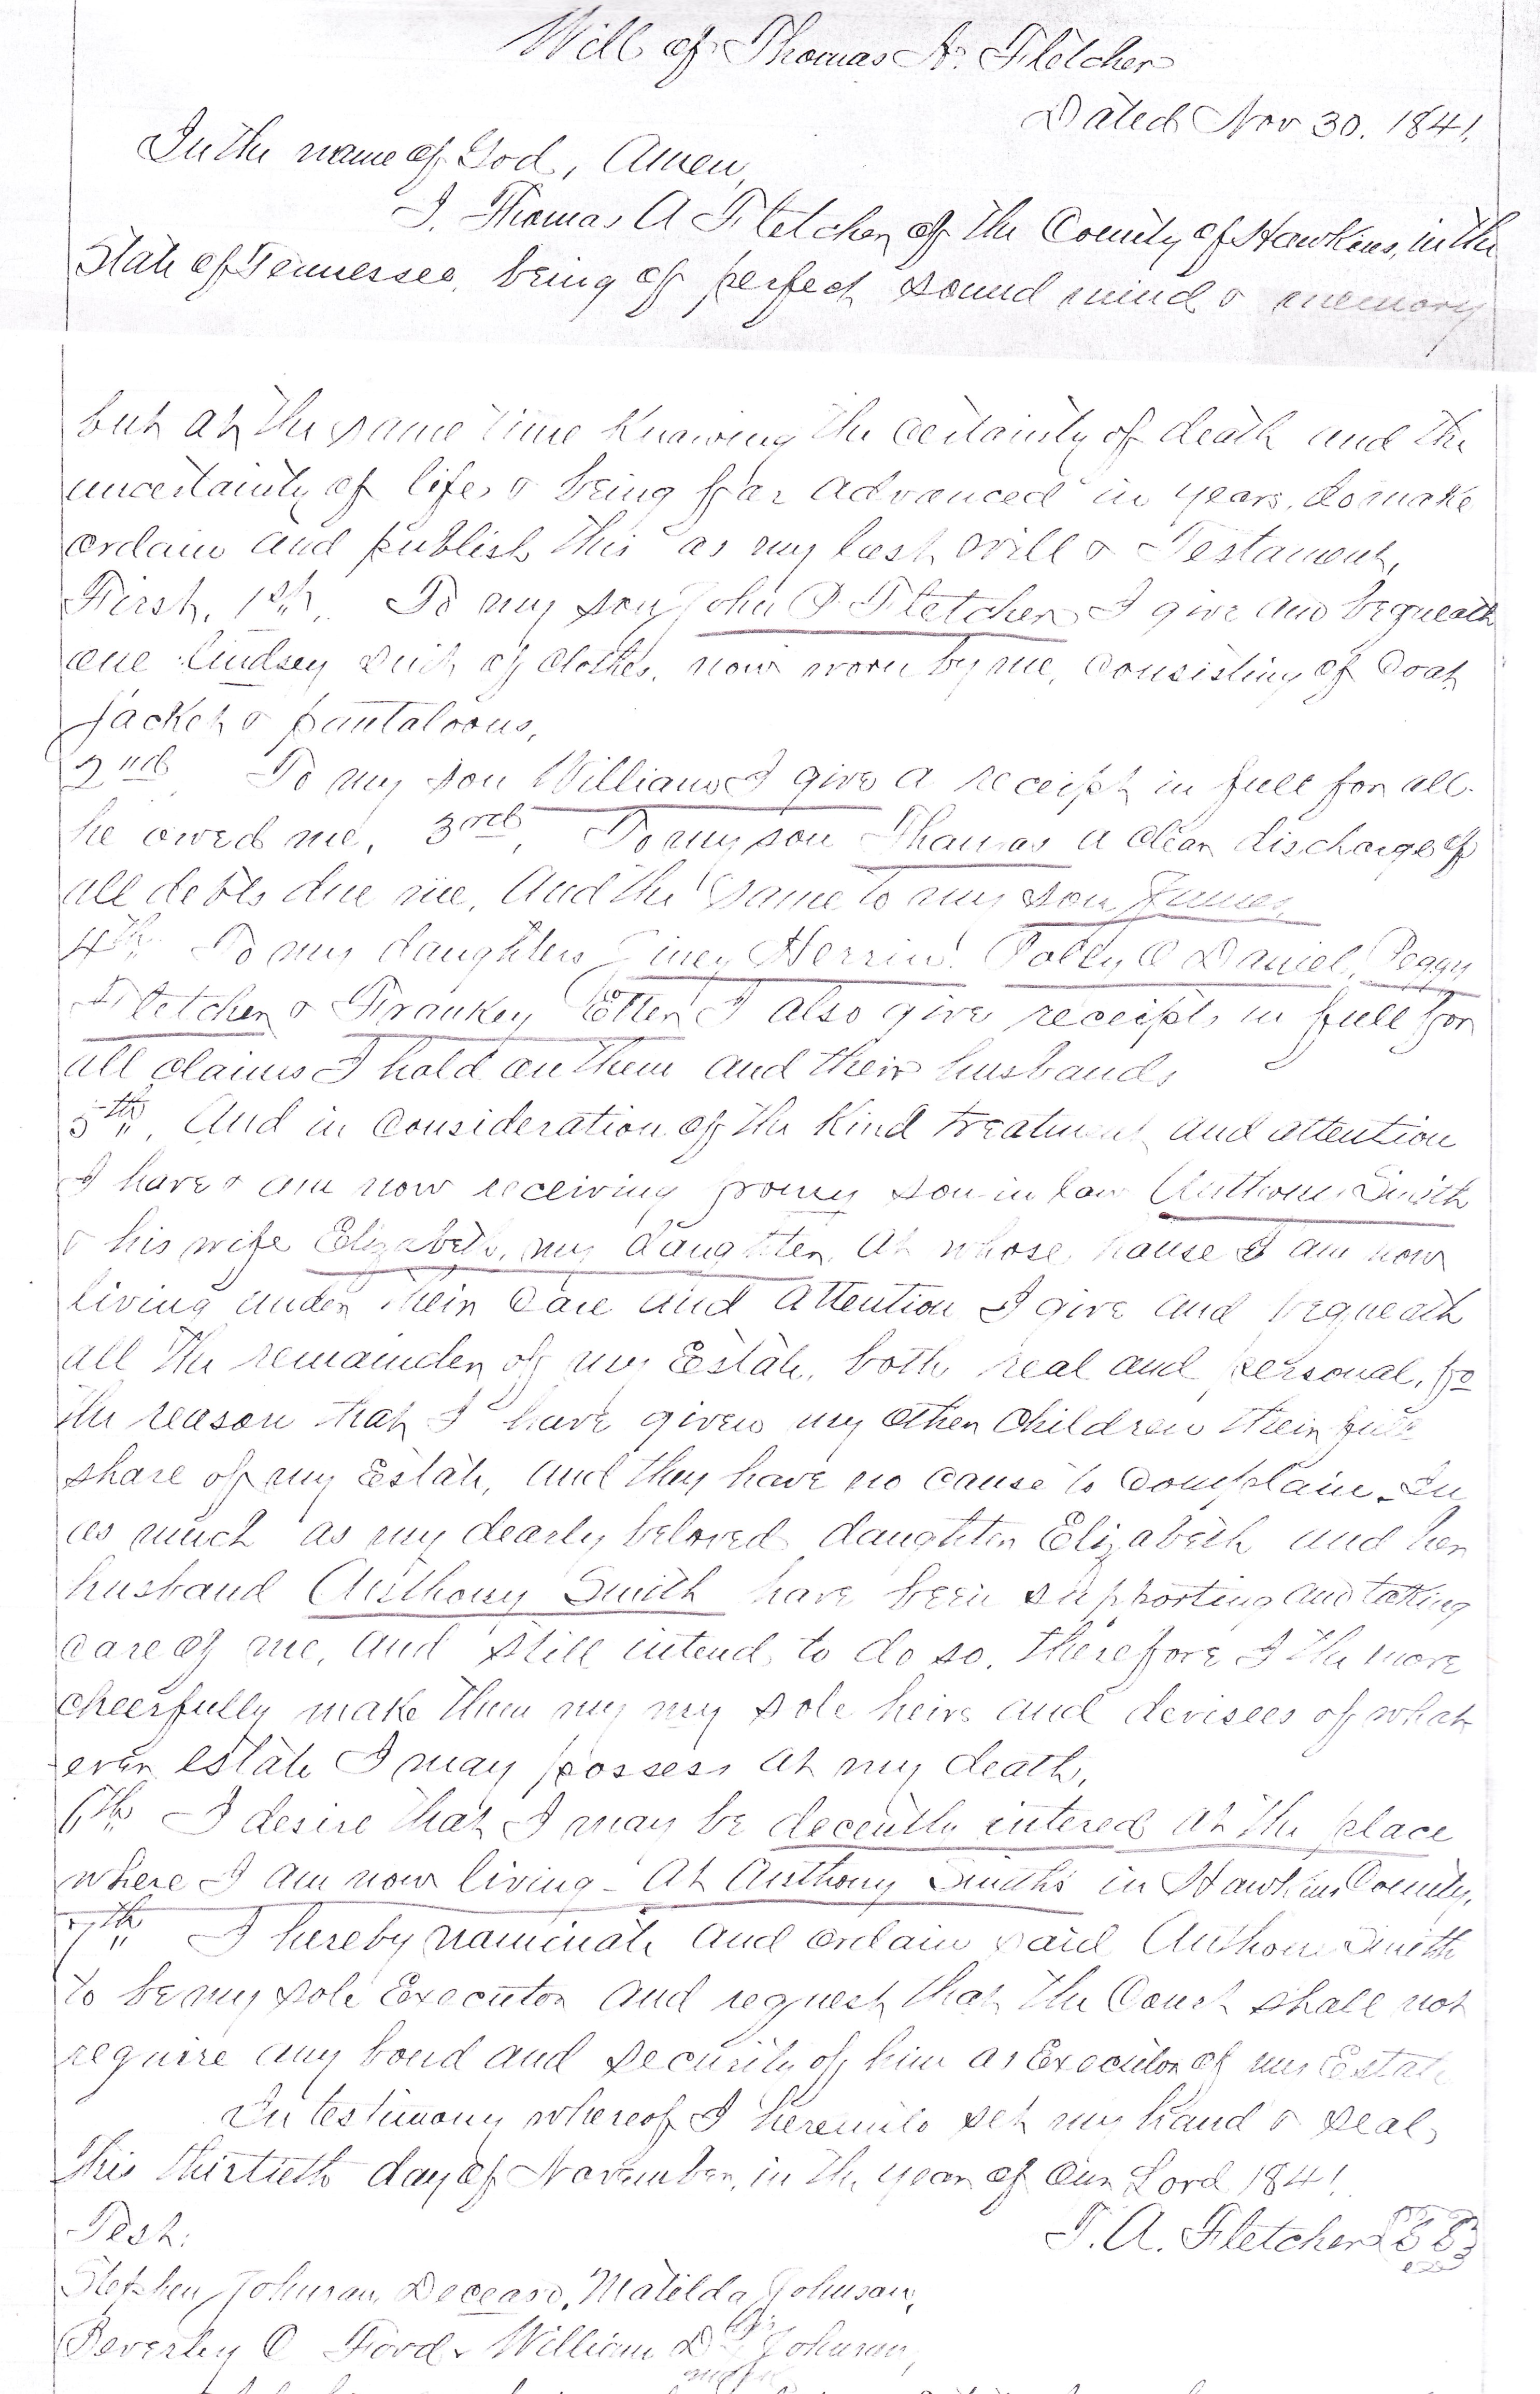 Will of Thomas A. Fletcher
Dated Nov 30. 1841.
In the name of God, Amen,
I. Thomas A Fletcher of the County of Hawkins, in the
State of Tennessee, being of perfect sound mind & memory
but at the same time knowing the certainty of death and the
uncertainty of life, & being far advanced in years, do make
ordain and publish this as my last will & Testament,
First, 1st,. To my son John P. Fletcher I give and bequeath
one lindsey suit of clothes, now worn by me, consisting of Coat
jacket & pantaloons,
2nd To my son William I give a receipt in full for all
he owed me, 3rd, To my son Thomas a clear discharge of
all debts due me, And the same to my son James,
4th To my daughters Herrin, Polly O Daniel, Peggy
Fletcher & Frankey I also give receipts in full for
all claims I hold on them and their husbands
5th, And in consideration of the kind treatment and attention
I have & am now receiving from my son in law Anthony Smith
& his wife Elizabeth, my daughter, at whose house I am now
living under their care and attention I give and bequeath
all the remainder of my Estate, both real and personal, for
the reason that I have given my other children their full
share of my Estate, and they have no cause to complain. In
as much as my dearly beloved daughter Elizabeth and her
husband Anthony Smith have been supporting and taking
care of me, and still intend to do so, therefore I the more
cheerfully make them my my sole heirs and devisees of what
ever estate I may possess at my death,
6th I desire that I may be decently intered at the place
where I am now living - at Anthony Smiths in Hawkins County,
7th I hereby nominate and ordain said Anthony Smith
to be my sole Executor and request that the Court shall not
require any bond and security of him as Executor of my Estate
In testimony whereof I hereunto set my hand & seal,
this thirtieth day of November, in the year of Our Lord 1841.
Test: T. A. Fletcher
Stephen Johnson, Deceasd, Matilda Johnson,
Beverley O Ford. William D Johnson,